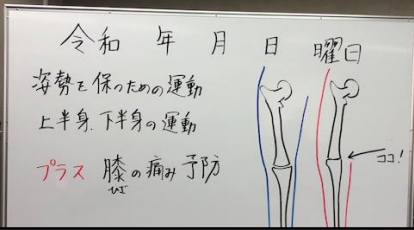 令和 年 月 日 曜日
姿勢を保つための運動
上半身、下半身の運動
プラス 膝の痛み予防
ひざ
ココ!